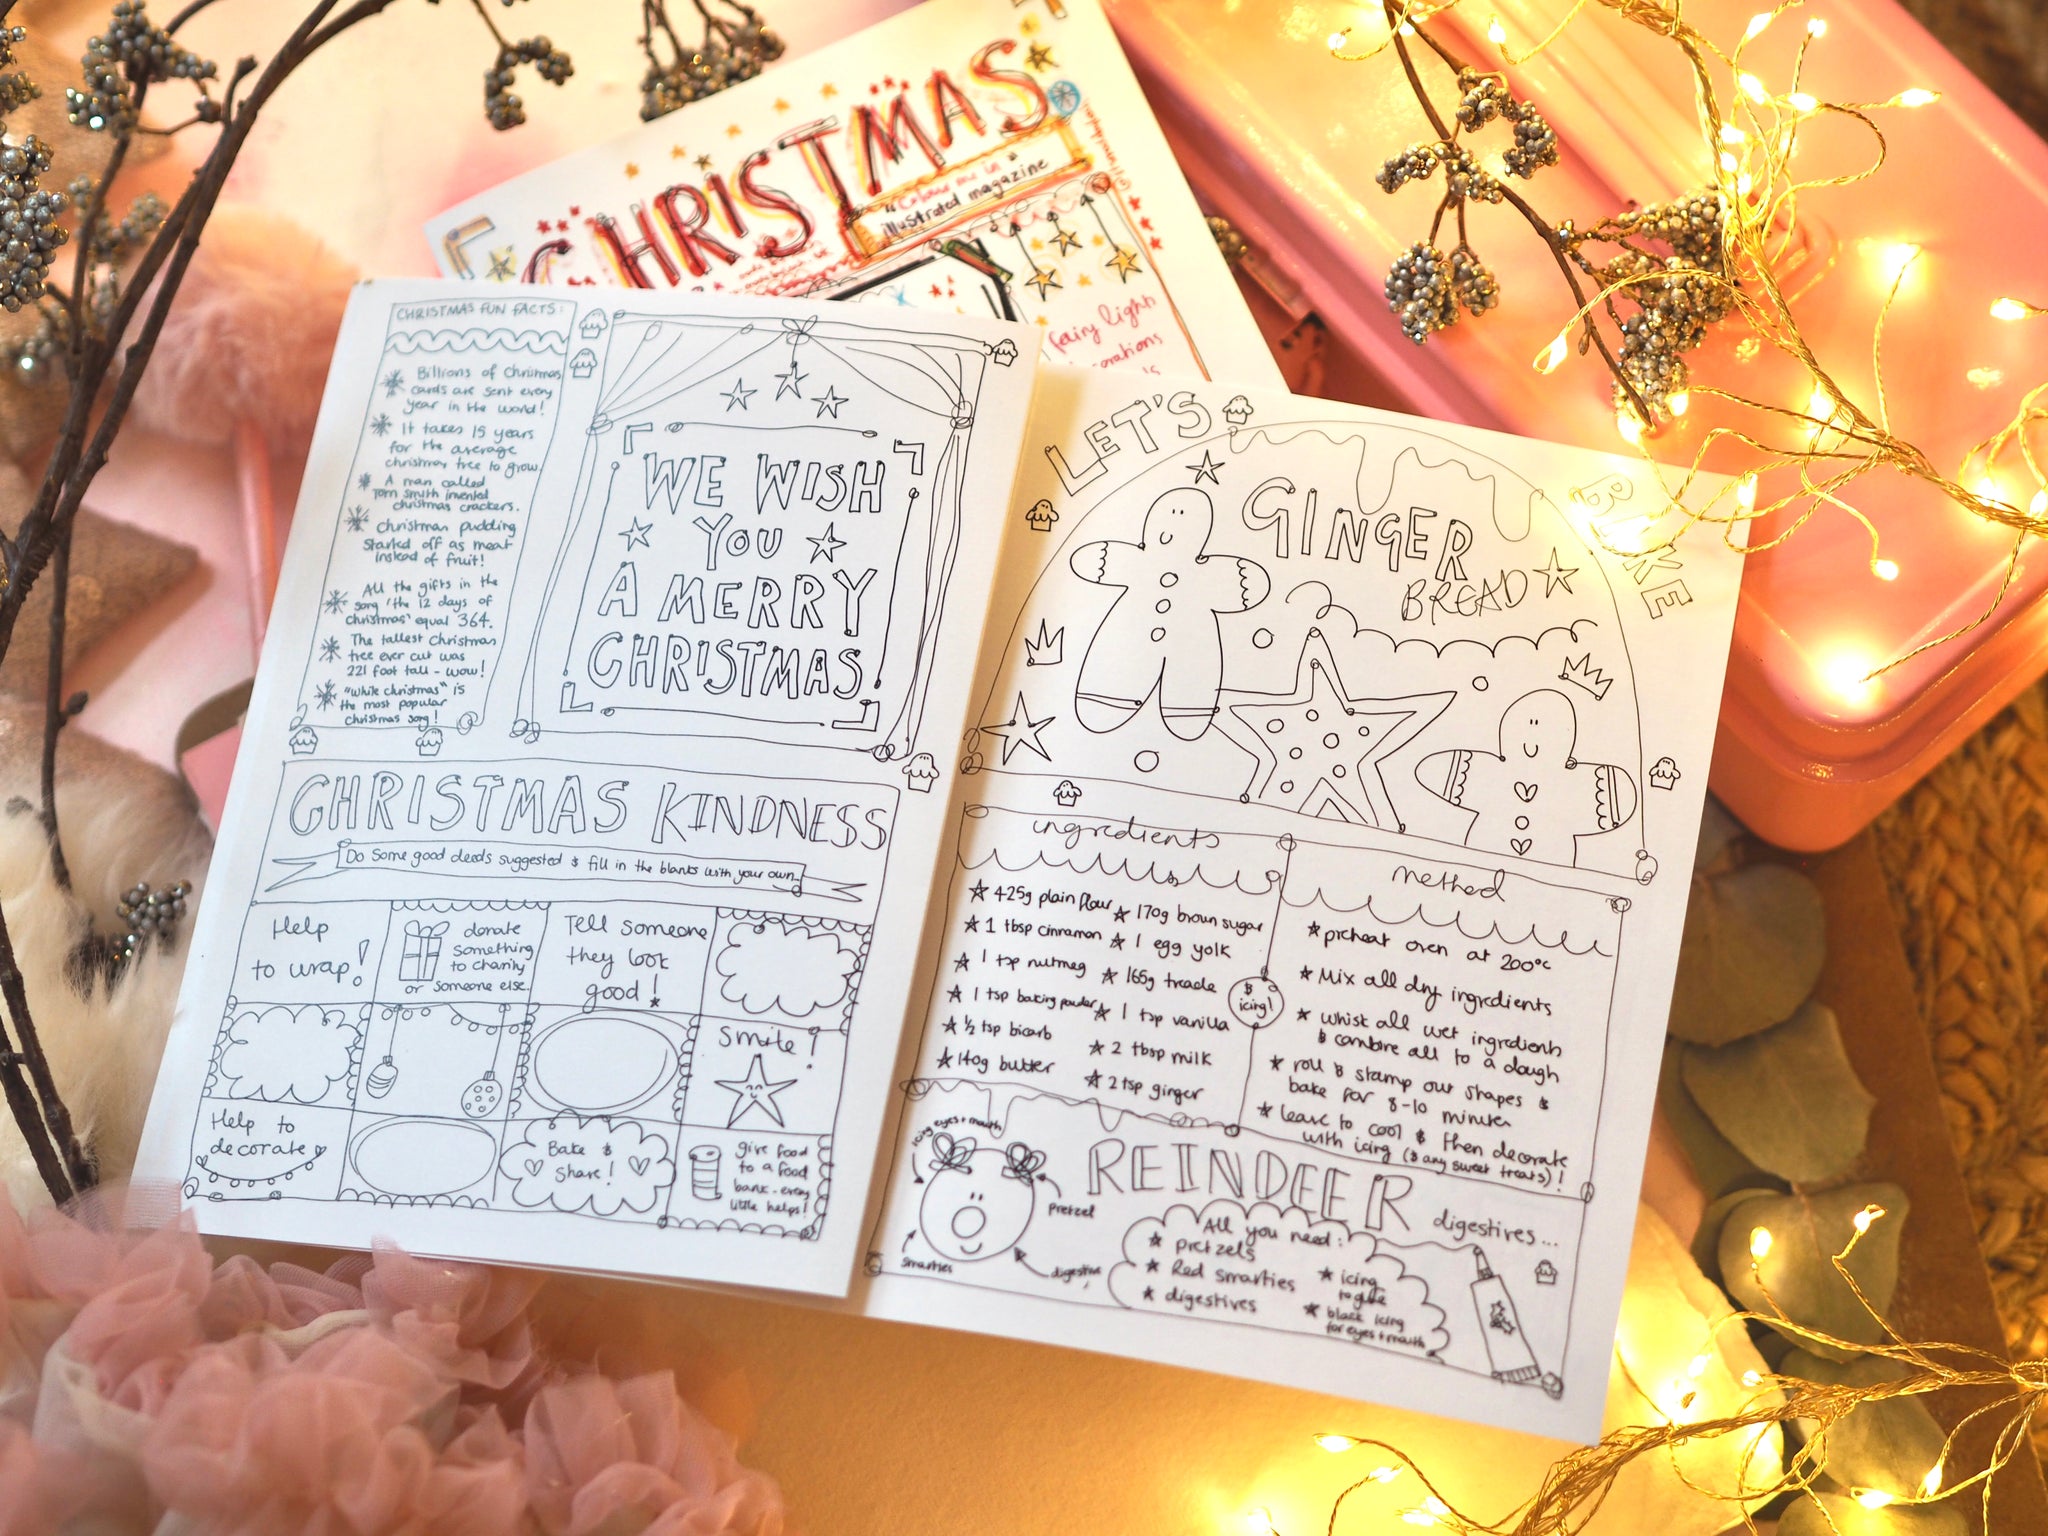 CHRISTMAS
"Colour me in"
illustrated magazine
fairy lights
CHRISTMAS FUN FACTS:
Billions of Christmas
cards are sent every
year in the world!
It takes 15 years
for the average
christmas tree to grow.
A man called
Tom Smith invented
christmas crackers.
Christmas pudding
started off as meat
instead of fruit!
All the gifts in the
song 'the 12 days of
christmas' equal 364.
The tallest Christmas
tree ever cut was
221 foot tall - wow!
"While christmas" is
the most popular
christmas song!
WE WISH
YOU
A MERRY
CHRISTMAS
CHRISTMAS KINDNESS
Do some good deeds suggested & fill in the blanks with your own...
Help
to wrap!
donate
something
to charity
or someone else.
Tell someone
they look
good!
Smile!
Help to
decorate
Bake &
Share!
give food
to a food
bank - every
little helps!
LET'S BAKE
GINGER
BREAD
ingredients
425g plain flour
1 tbsp cinnamon
1 tsp nutmeg
1 tsp baking powder
½ tsp bicarb
140g butter
170g brown sugar
1 egg yolk
165g treacle
1 tsp vanilla
2 tbsp milk
2 tsp ginger
& icing!
method
preheat oven at 200°C
Mix all dry ingredients
whisk all wet ingredients
& combine all to a dough
roll & stamp out shapes &
bake for 8-10 minutes
leave to cool & then decorate
with icing (& any sweet treats)!
REINDEER digestives...
icing eyes + mouth
pretzel
smarties
digestive
All you need:
pretzels
Red smarties
digestives
icing
to glue
black icing
for eyes + mouth